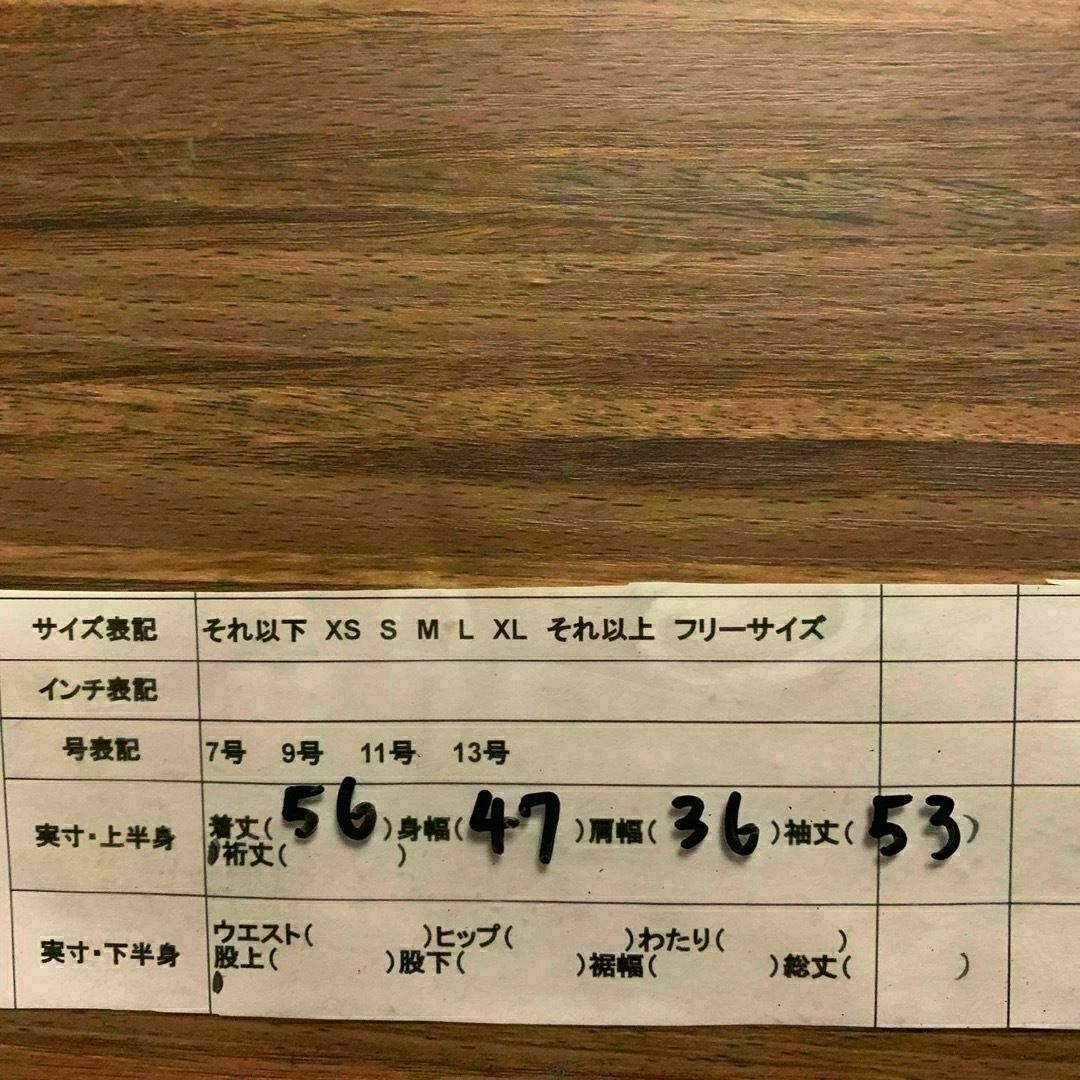 サイズ表記 それ以下 XS S M L XL それ以上 フリーサイズ
インチ表記
号表記 7号 9号 11号 13号
実寸・上半身 着丈(56)身幅(47)肩幅(36)袖丈(53)
裄丈( )
実寸・下半身 ウエスト( )ヒップ( )わたり( )
股上( )股下( )裾幅( )総丈( )